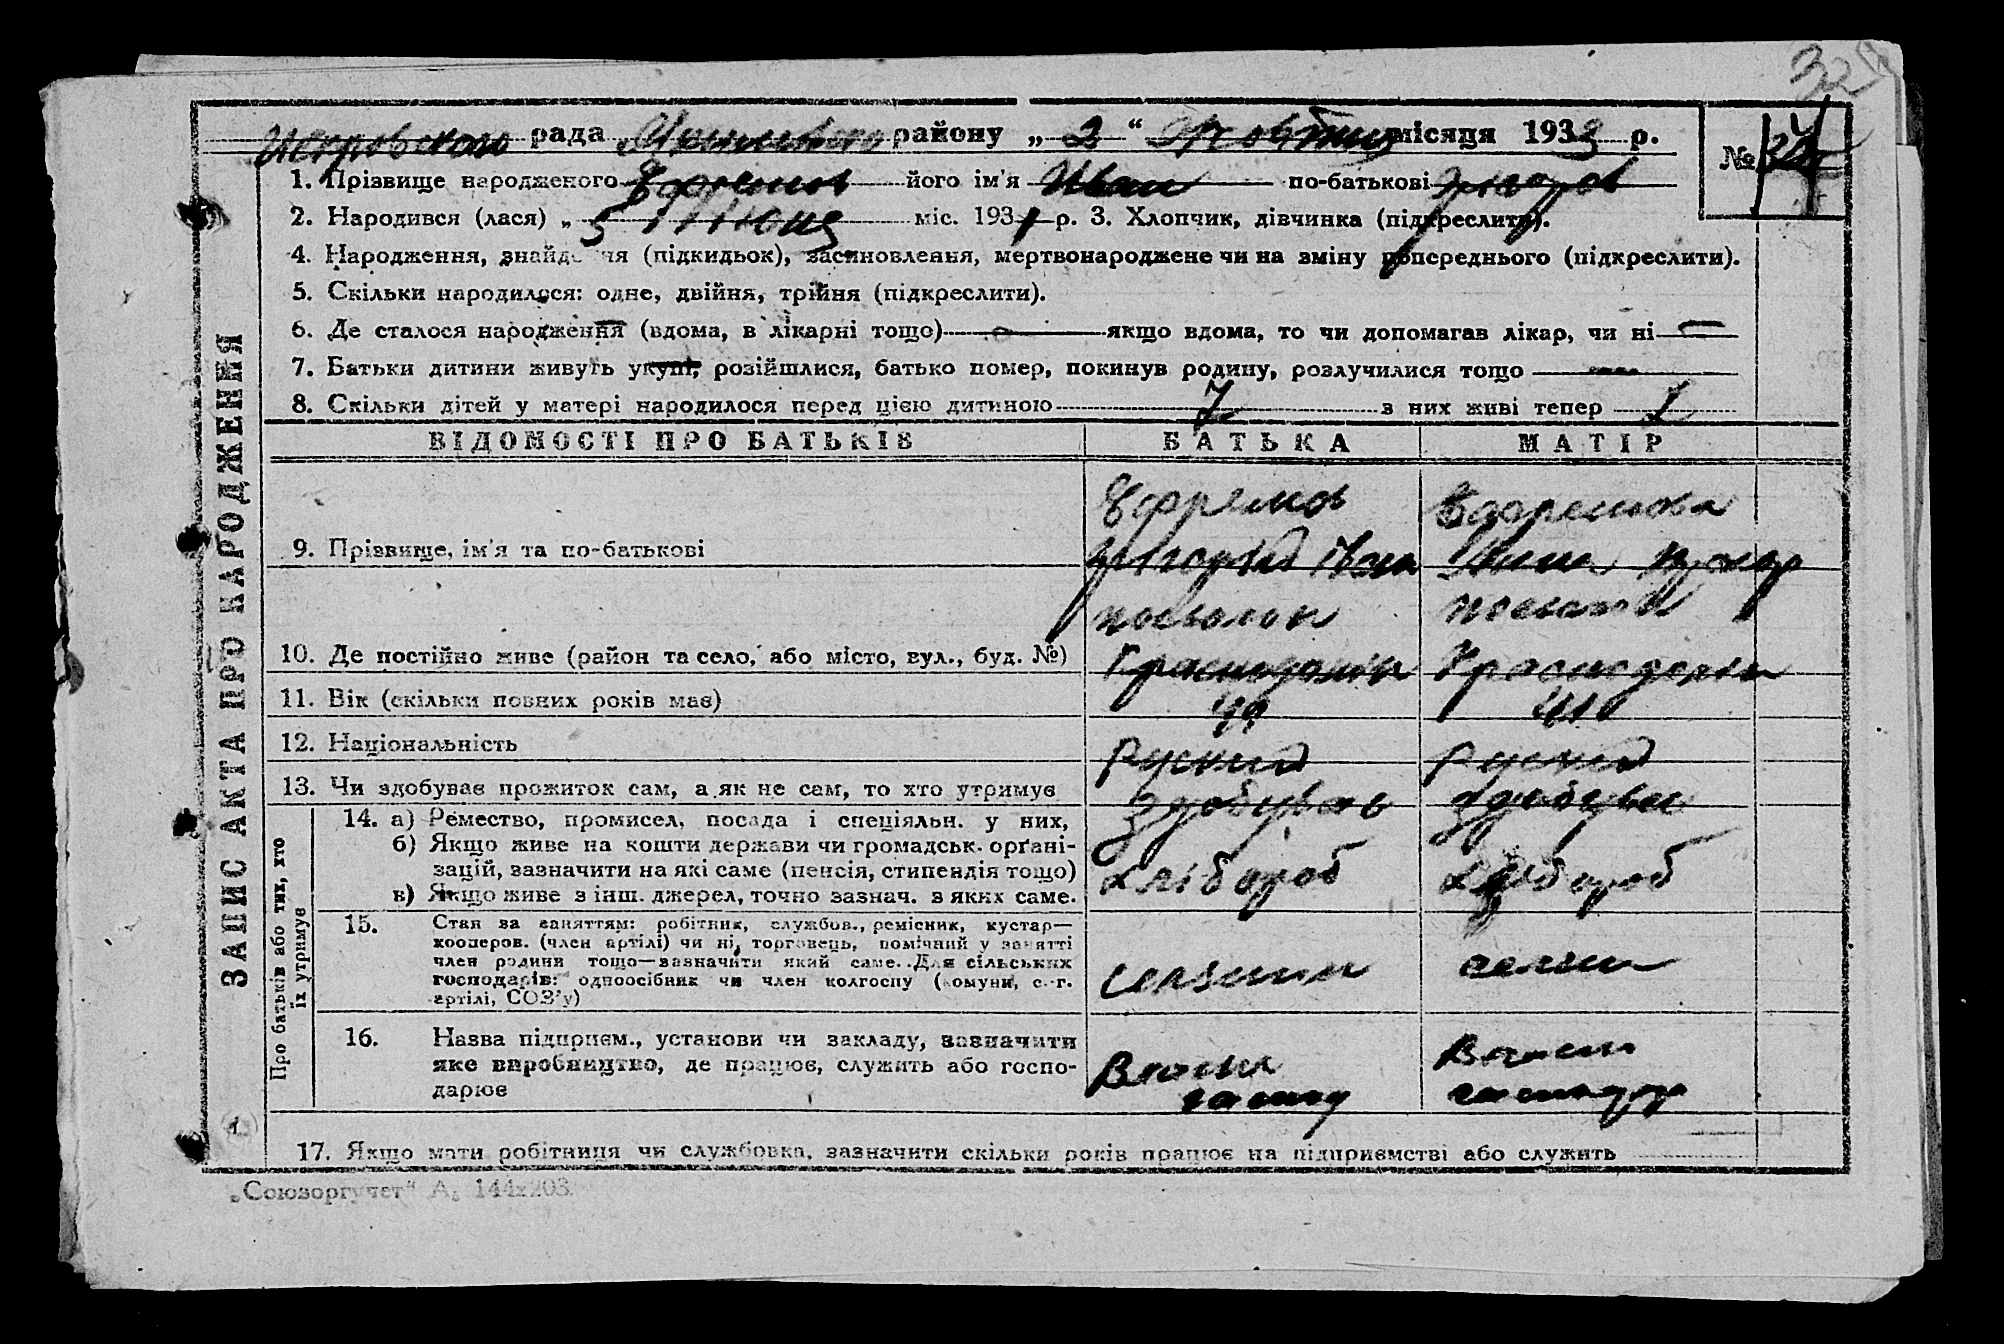 324
Искровского рада районy „ 2 “ Жовтня місяця 1933 р.
№
1. Прізвище народженого Ефремов його ім'я Иван по-батькові Григоров
2. Народився (лася) „ 5 Июня міс. 193 р. 3. Хлопчик, дівчинка (підкреслити).
4. Народження, знайдення (підкидьок), засиновлення, мертвонароджене чи на зміну попереднього (підкреслити).
5. Скільки народилося: одне, двійня, трійня (підкреслити).
6. Де сталося народження (вдома, в лікарні тощо) якщо вдома, то чи допомагав лікар, чи ні
7. Батьки дитини живуть укупі, розійшлися, батько помер, покинув родину, розлучилися тощо
8. Скільки дітей у матері народилося перед цією дитиною 7 з них живі тепер
ВІДОМОСТІ ПРО БАТЬКІВ БАТЬКА МАТІР
Ефремов Ефремова
9. Прізвище, ім'я та по-батькові Григорій Іван
посьолок
10. Де постійно живе (район та село, або місто, вул., буд. №) Краснодолін Краснодолін
11. Вік (скільки повних років має)
12. Національність Руский Руский
13. Чи здобуває прожиток сам, а як не сам, то хто утримує здобуває здобуває
14. а) Ремество, промисел, посада і спеціяльн. у них,
б) Якщо живе на кошти держави чи громадськ. орґані-
зацій, зазначити на які саме (пенсія, стипендія тощо) хлібороб хлібороб
в) Якщо живе з інш. джерел, точно зазнач. з яких саме.
15. Стан за заняттям: робітник, службов., ремісник, кустар—
кооперов. (член артілі) чи ні, торговець, помічний у занятті
член родини тощо—зазначити який саме. Для сільських
господарів: одноосібник чи член колгоспу (комуни, с.-г.
артілі, СОЗ'у) селянин
16. Назва підприєм., установи чи закладу, зазначити
яке виробництво, де працює, служить або госпо-
дарює
17. Якщо мати робітниця чи службовка, зазначити скільки років працює на підприємстві або служить
„Союзоргучет“ А₅ 144х203.
ЗАПИС АКТА ПРО НАРОДЖЕННЯ
Про батьків або тих, хто
їх утримує
1